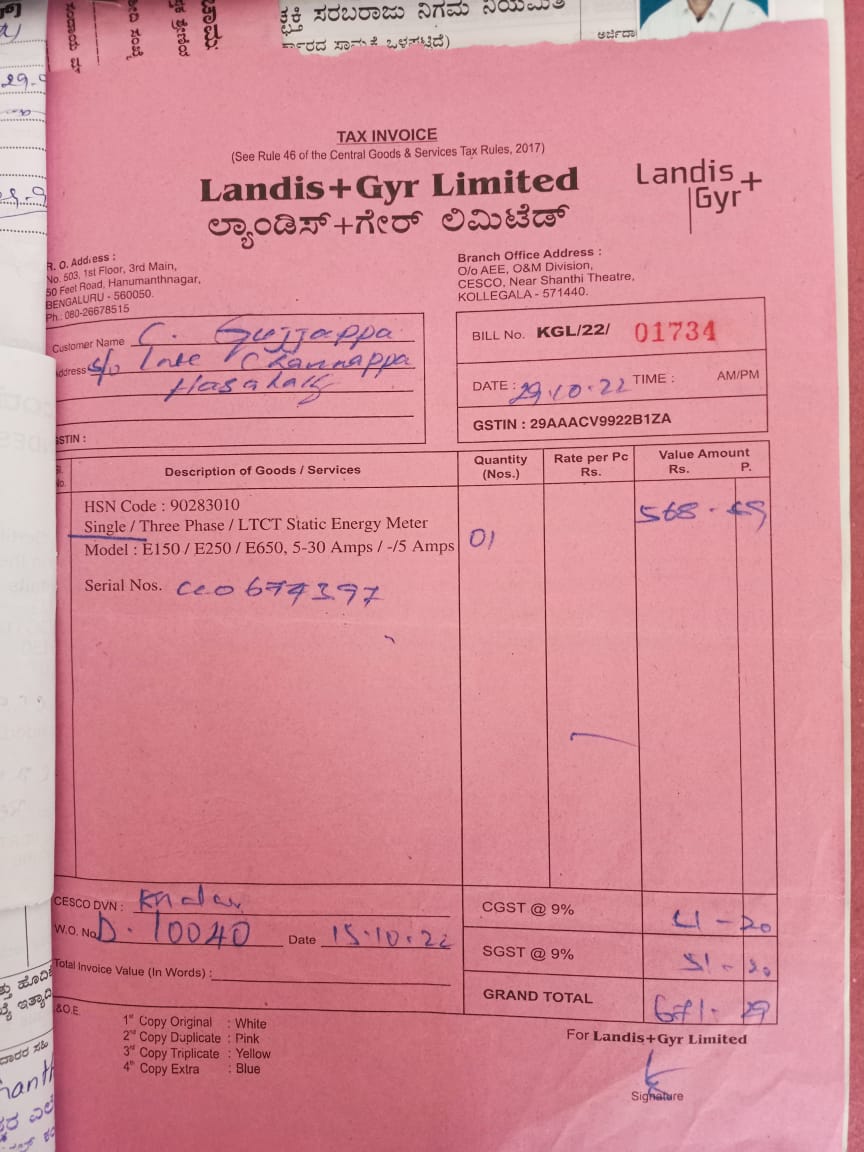 ಶಕ್ತಿ ಸರಬರಾಜು ನಿಗಮ ನಿಯಮಿತ
ಅರ್ಜಿದಾ
TAX INVOICE
(See Rule 46 of the Central Goods & Services Tax Rules, 2017)
Landis+Gyr Limited
ಲ್ಯಾಂಡಿಸ್+ಗೇರ್ ಲಿಮಿಟೆಡ್
Landis
Gyr+
R. O. Address :
No. 503, 1st Floor, 3rd Main,
50 Feet Road, Hanumanthnagar,
BENGALURU - 560050.
Ph.: 080-26678515
Branch Office Address :
O/o AEE, O&M Division,
CESCO, Near Shanthi Theatre,
KOLLEGALA - 571440.
Customer Name C. Gujjappa
Address S/o Late Channappa
GSTIN :
BILL No. KGL/22/ 01734
DATE : 29.10.22 TIME : AM/PM
GSTIN : 29AAACV9922B1ZA
Sl. No. Description of Goods / Services Quantity (Nos.) Rate per Pc Rs. Value Amount Rs. P.
HSN Code : 90283010
Single / Three Phase / LTCT Static Energy Meter
Model : E150 / E250 / E650, 5-30 Amps / -/5 Amps 01
Serial Nos.
CESCO DVN :
W.O. No. D. 10040 Date 15.10.22
Total Invoice Value (In Words) :
CGST @ 9%
SGST @ 9% 51-20
GRAND TOTAL 671-29
&O.E.
1st Copy Original : White
2nd Copy Duplicate : Pink
3rd Copy Triplicate : Yellow
4th Copy Extra : Blue
For Landis+Gyr Limited
Signature